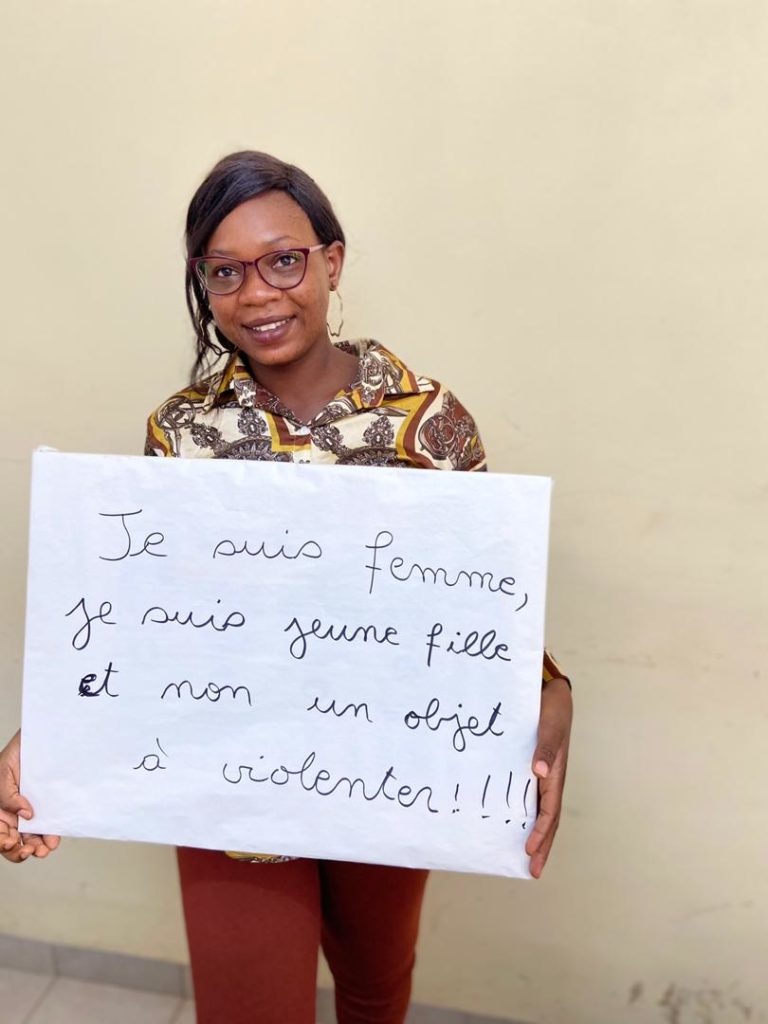 Je suis femme,
je suis jeune fille
et non un objet
à violenter!!!!